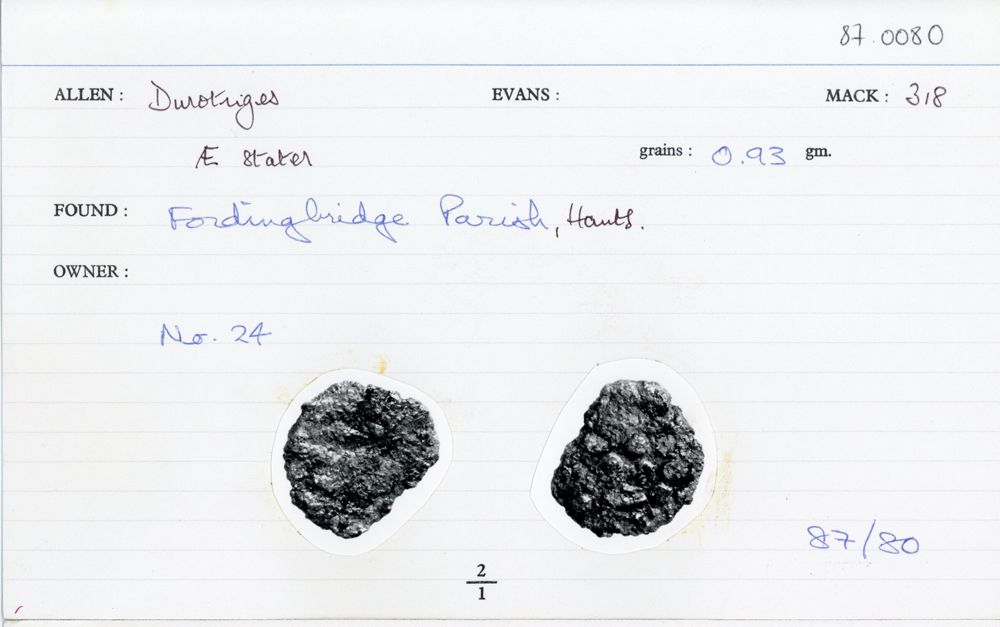 87.0080
ALLEN : Durotriges EVANS : MACK : 318
Æ Stater grains : 0.93 gm.
FOUND : Fordingbridge Parish, Hants.
OWNER :
No. 24
87/80
2
1